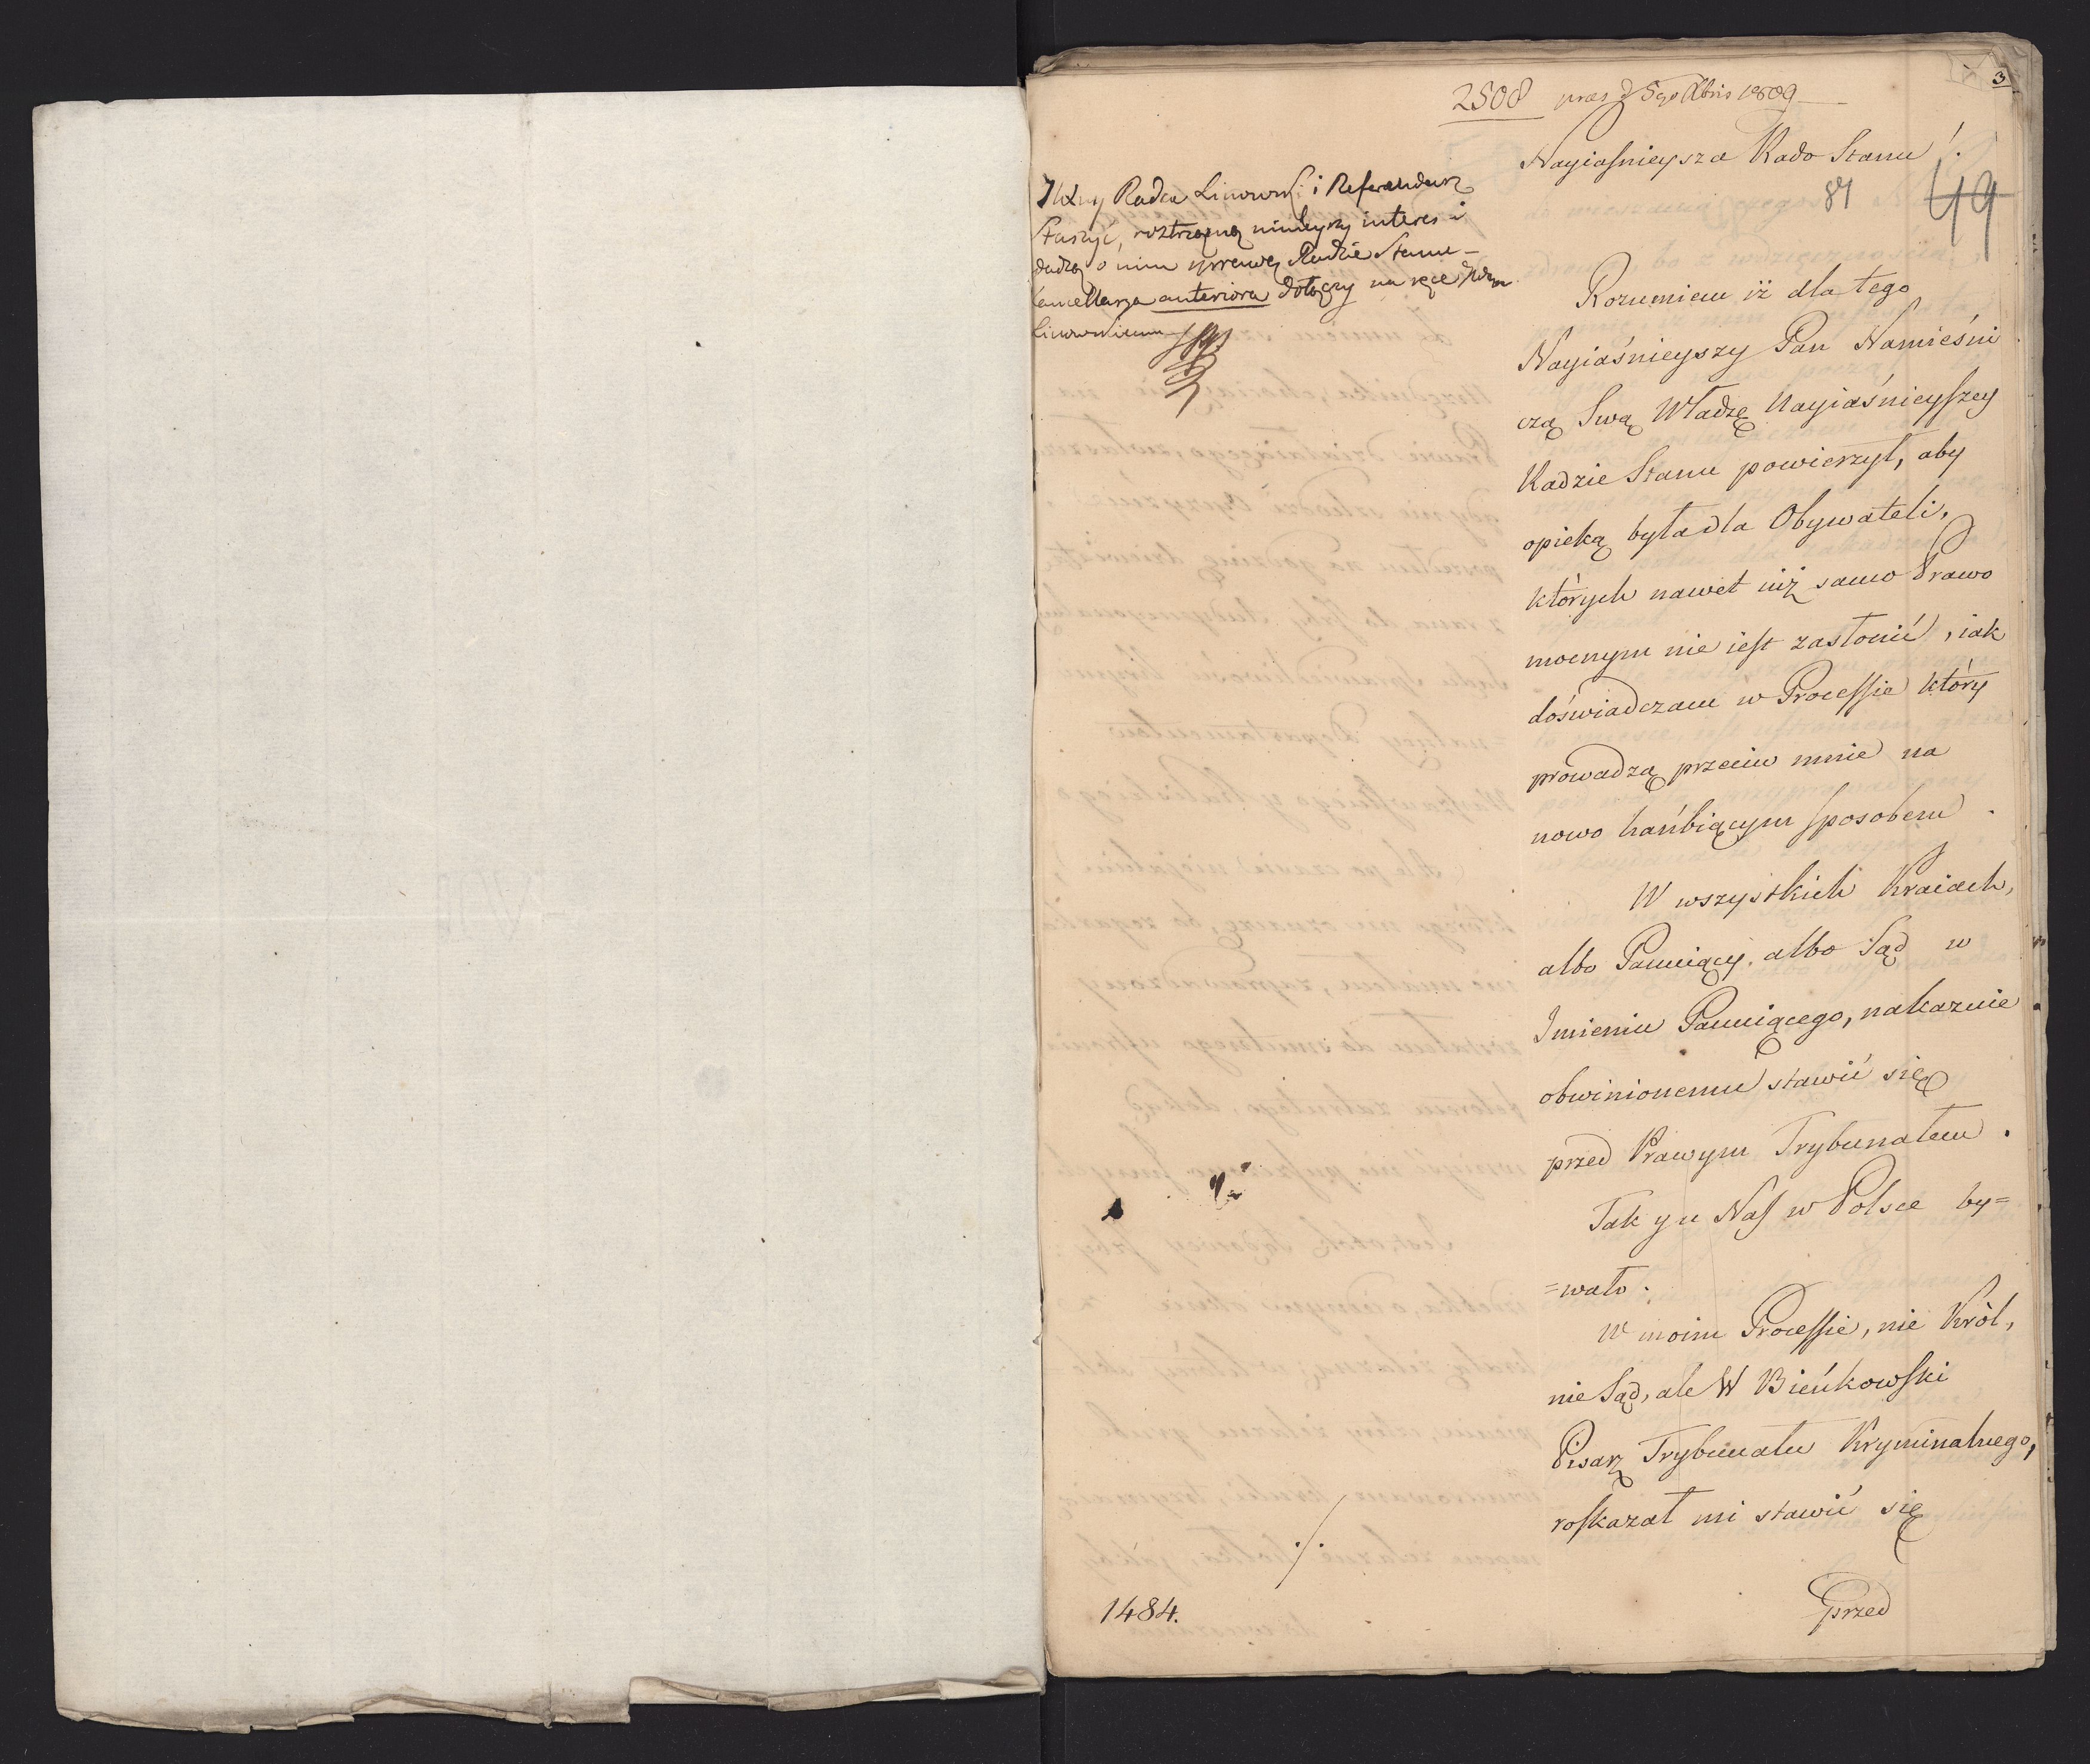 3
2508 præs d 5go Xbris 1809
Nayiaśnieysza Rado Stanu!
87 49
JWny Radca Linowski i Referendarz
Staszyc, roztrząsną ninieyszy interes i
dadzą o nim sprawę Radzie Stanu –
Kancellarya anteriora dołączy na ręce JWgo
Linowskiemu
Rozumiem iż dla tego
Nayiaśnieyszy Pan Namieśni
czą Swą Władzę Nayiaśnieyszey
Radzie Stanu powierzył, aby
opieką była dla Obywateli,
których nawet iuż samo Prawo
mocnym nie iest zasłonić, iak
doświadczam w Processie który
prowadzą przeciw mnie na
nowo hańbiącym sposobem.
W wszystkich Kraiach,
albo Panuiący. albo Sąd w
Imieniu Panuiącego, nakazuie
obwinionemu stawić się
przed Prawym Trybunałem.
Tak y u Nas w Polsce by=
=wało.
W moim Processie, nie Król,
nie Sąd, ale W Bieńkowski
Pisarz Trybunału Kryminalnego,
roskazał mi stawić się
przed
./.
1484.